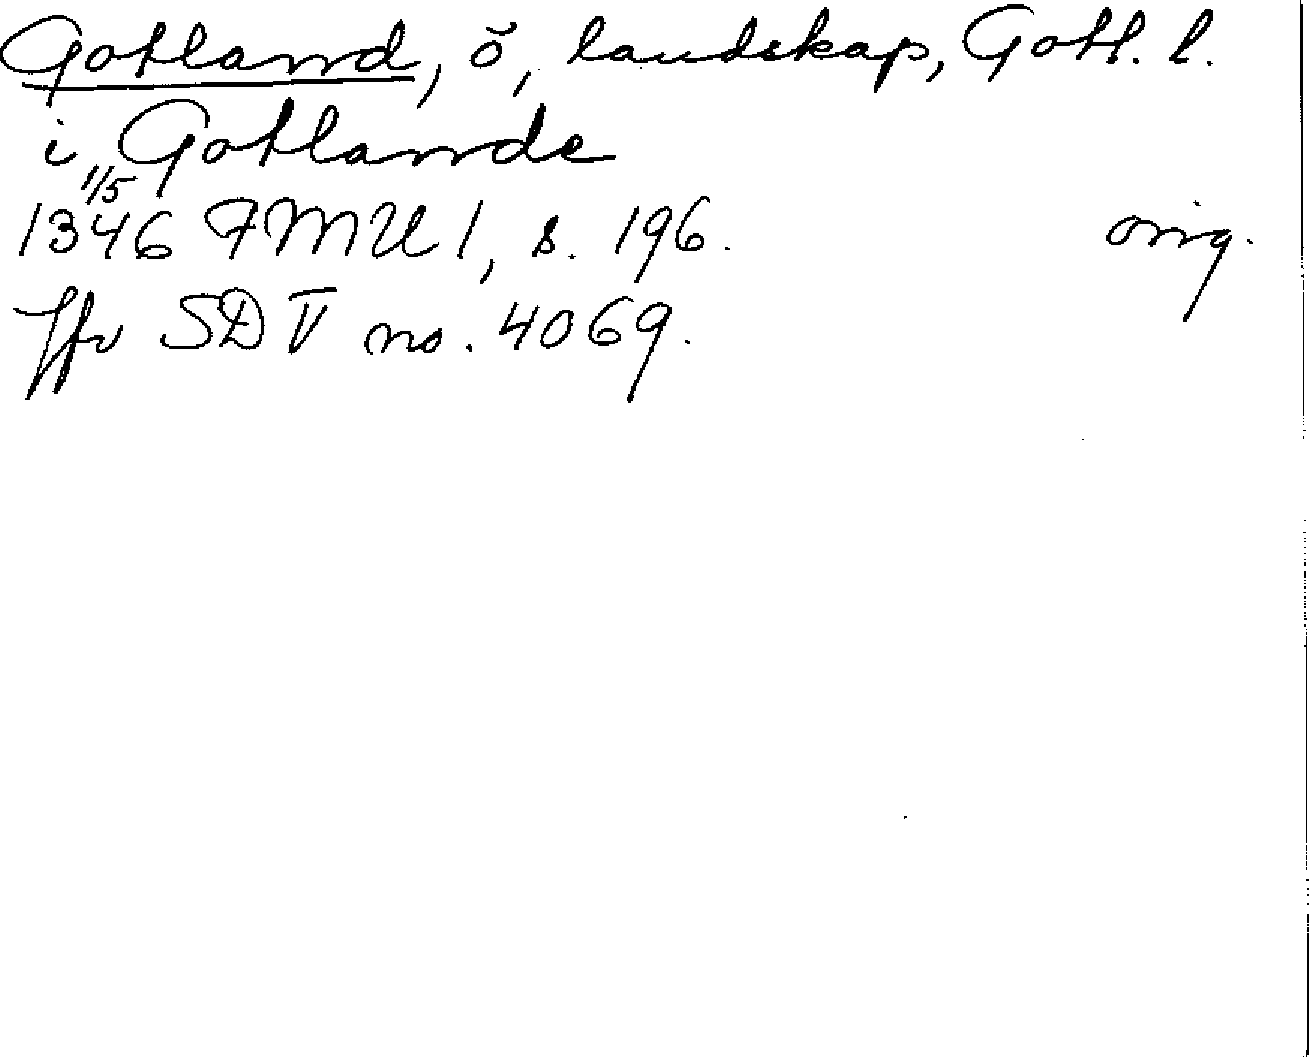 Gotland, ö, landskap, Gotl. l.
i Gotlande
1/5
1346 FMU 1, s. 196. orig.
Jfr SD V no. 4069.